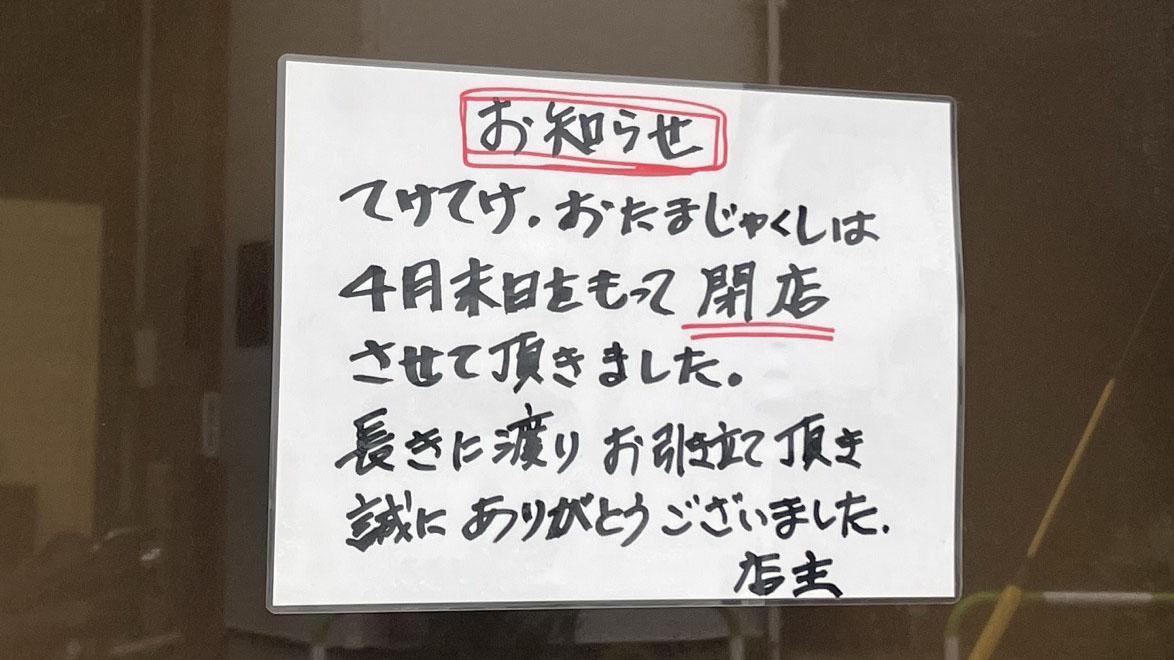 お知らせ
てけてけ.おたまじゃくしは
4月末日をもって閉店
させて頂きました。
長きに渡りお引き立て頂き
誠にありがとうございました.
店主